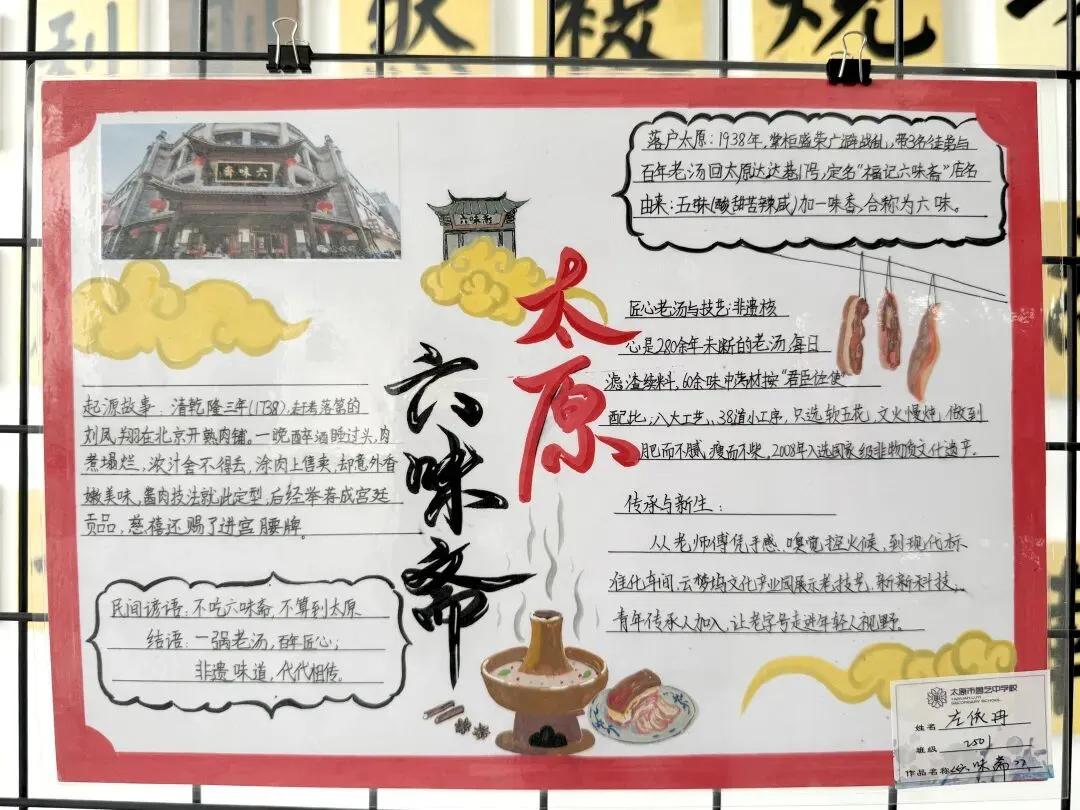 六味斋
六味斋
太原
六味斋
落户太原：1938年，掌柜盛荣广避战乱，带3名徒弟与
百年老汤回太原达达巷1号，定名“福记六味斋”店名
由来：五味(酸甜苦辣咸)加一味香，合称为六味。
起源故事：清乾隆三年(1738)，赶考落第的
刘凤翔在北京开熟肉铺。一晚醉酒睡过头，肉
煮塌烂，浓汁舍不得丢，涂肉上售卖，却意外香
嫩美味，酱肉技法就此定型，后经举荐成宫廷
贡品，慈禧还赐了进宫腰牌。
匠心老汤与技艺：非遗核
心是280余年未断的老汤，每日
滤渣续料，60余味中药材按“君臣佐使”
配比，八大工艺、38道小工序，只选软五花，文火慢炖，做到
肥而不腻，瘦而不柴，2008年入选国家级非物质文化遗产。
传承与新生：
从老师傅凭手感、嗅觉控火候，到现代标
准化车间，云梦坞文化产业园展示老技艺，新新科技，
青年传承人加入，让老字号走进年轻人视野。
民间谚语：不吃六味斋，不算到太原
结语：一锅老汤，百年匠心；
非遗味道，代代相传。
太原市 艺中学校
SECONDARY SCHOOL
姓名 左依冉
班级 2501
作品名称《六味斋》